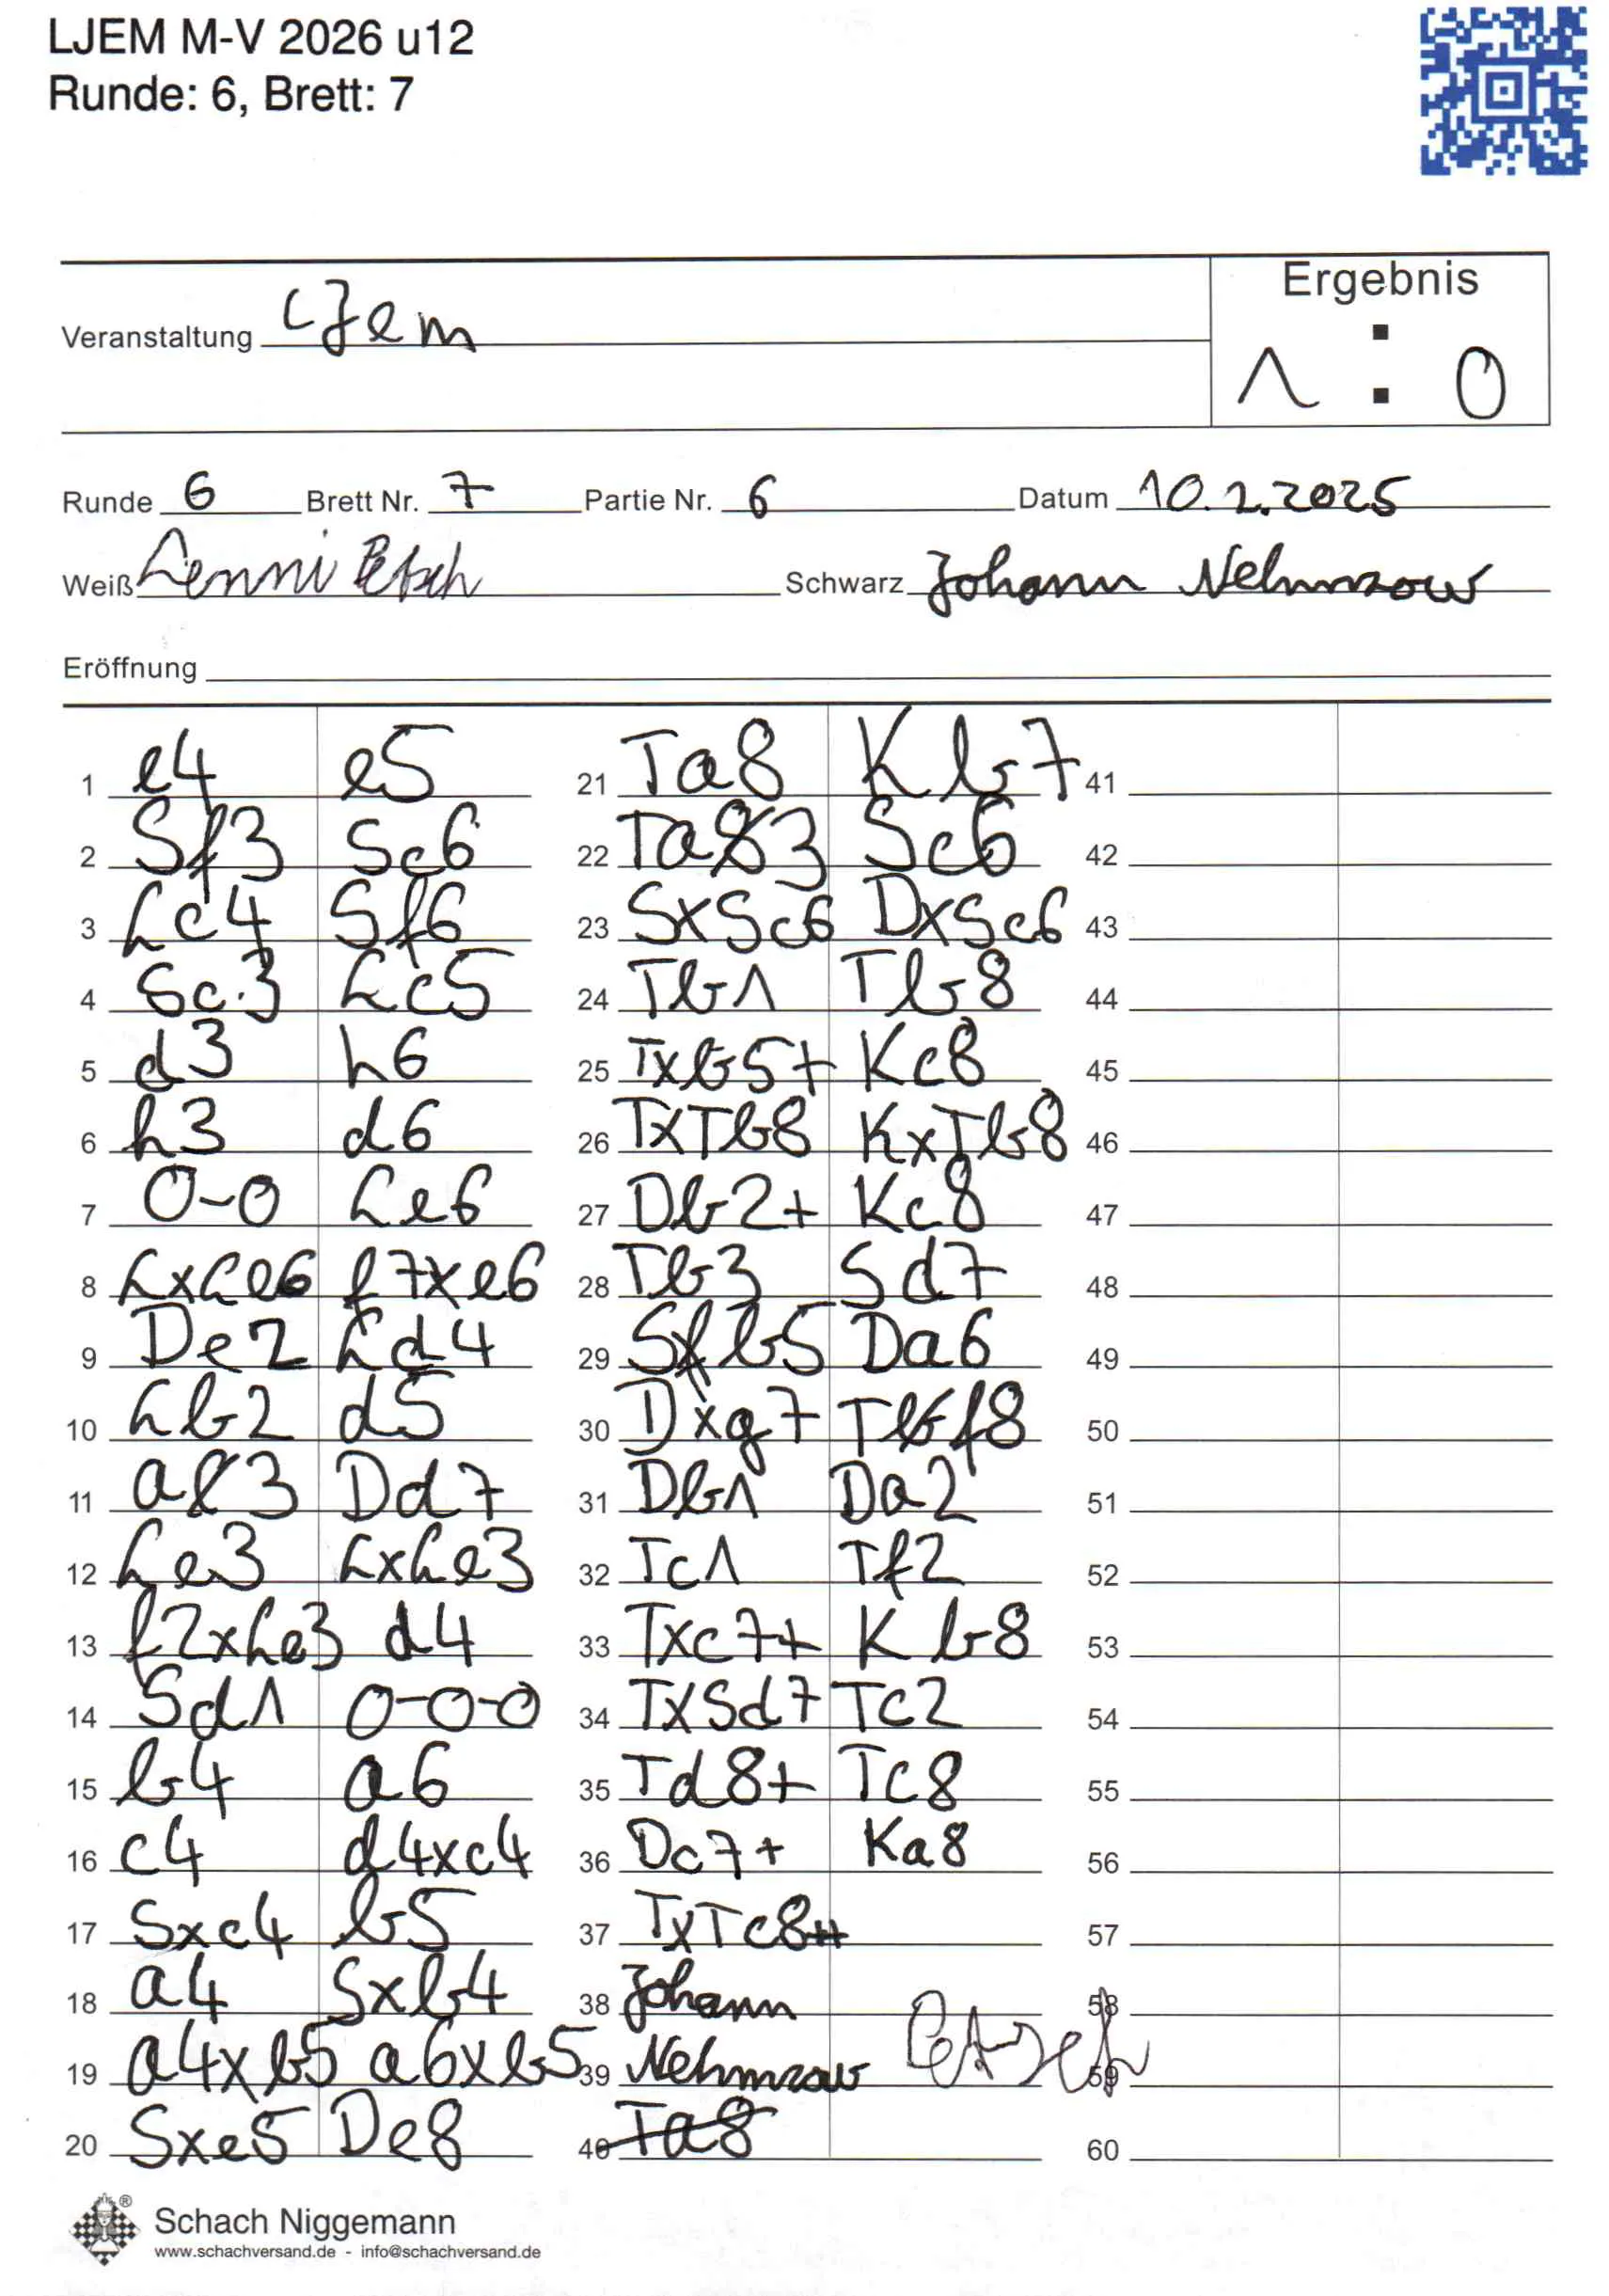 LJEM M-V 2026 u12
Runde: 6, Brett: 7
Ergebnis
Veranstaltung LJem
1 : 0
Runde 6 Brett Nr. 7 Partie Nr. 6 Datum 10.2.2025
Weiß Lenni Petsch Schwarz Johann Nehmzow
Eröffnung
1 e4 e5
2 Sf3 Sc6
3 Lc4 Sf6
4 Sc3 Lc5
5 d3 h6
6 h3 d6
7 0-0 Le6
8 LxLe6 f7xe6
9 De2 Ld4
10 Lb2 d5
11 a3 Dd7
12 Le3 LxLe3
13 f2xLe3 d4
14 Sd1 0-0-0
15 b4 a6
16 c4 d4xc4
17 Sxc4 b5
18 a4 Sxb4
19 a4xb5 a6xb5
20 Sxe5 De8
21 Ta8 Kb7
22 Ta3 Sc6
23 SxSc6 DxSc6
24 Tb1 Tb8
25 Txb5+ Kc8
26 TxTb8 KxTb8
27 Db2+ Kc8
28 Tb3 Sd7
29 Sb5 Da6
30 Dxg7 Tf8
31 Db1 Da2
32 Tc1 Tf2
33 Txc7+ Kb8
34 TxSd7 Tc2
35 Td8+ Tc8
36 Dc7+ Ka8
37 TxTc8#
38 Johann
39 Nehmzow Petsch
40 Ta8
41
42
43
44
45
46
47
48
49
50
51
52
53
54
55
56
57
58
59
60
Schach Niggemann
www.schachversand.de - info@schachversand.de